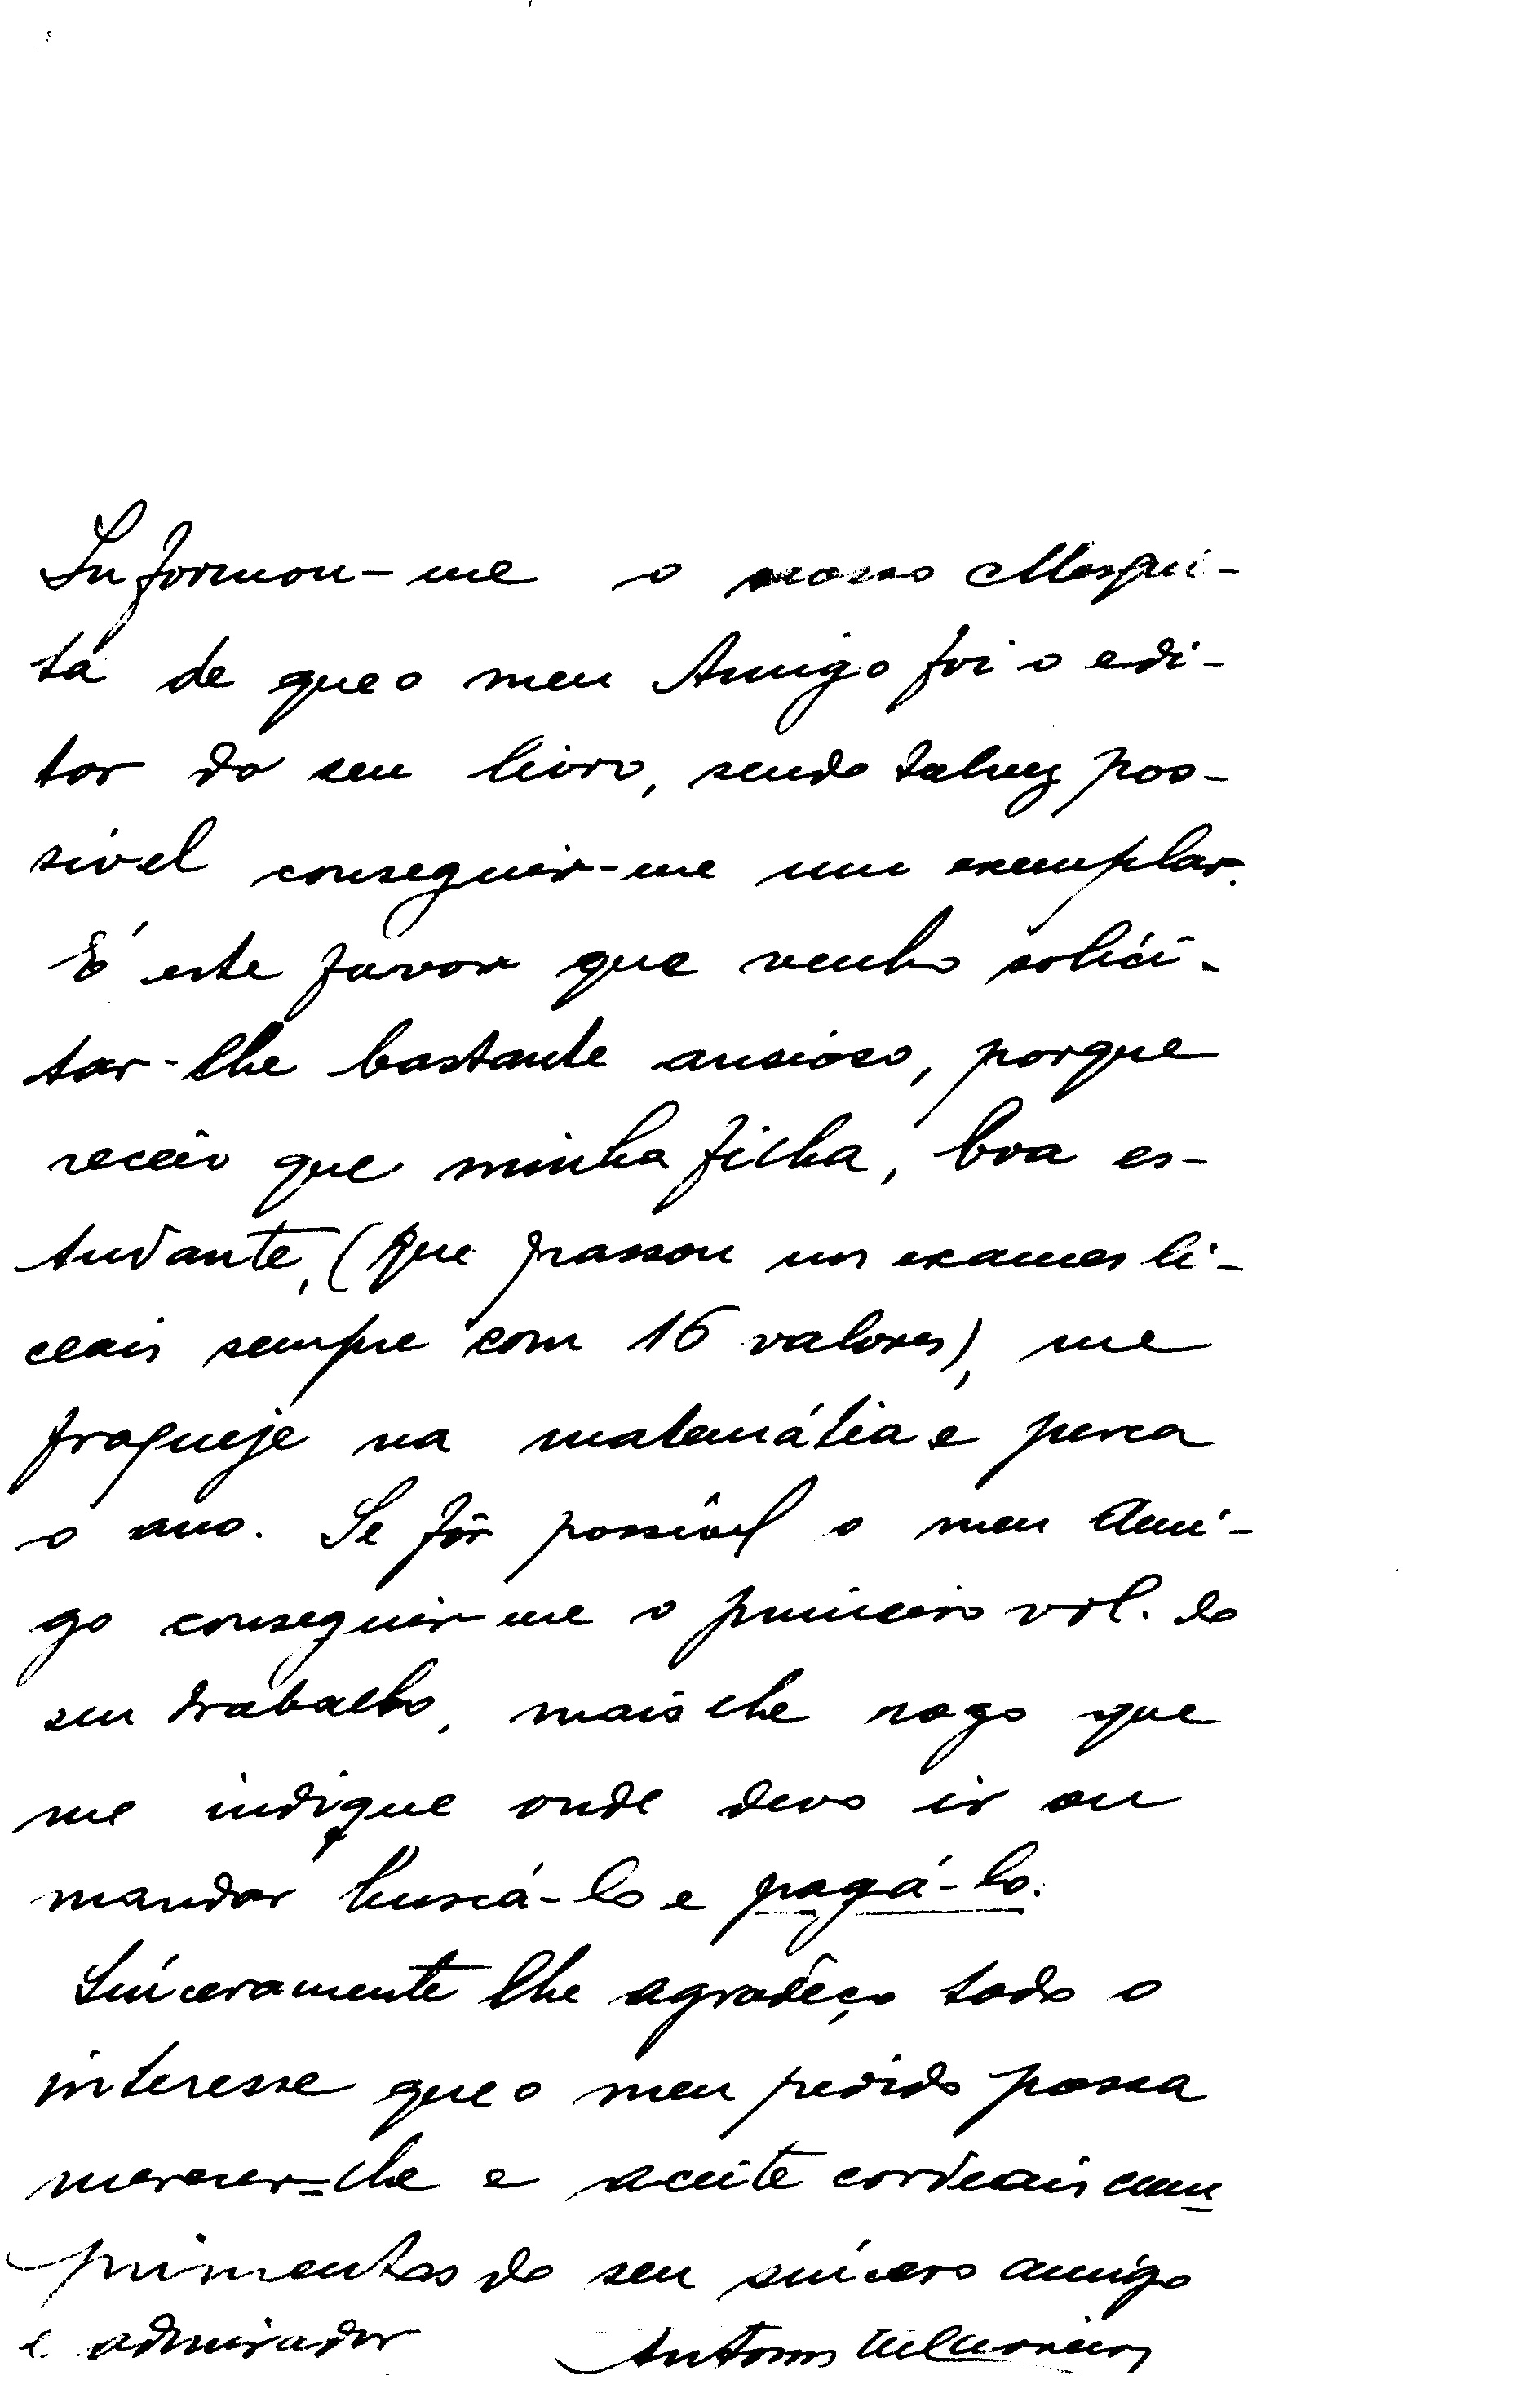 Informou-me o nosso Mesqui-
ta de que o meu Amigo foi o edi-
tor do seu livro, sendo talvez pos-
sível conseguir-me um exemplar.
É este favor que venho solici-
tar-lhe bastante ansioso, porque
receio que minha filha, boa es-
tudante, (que passou nos exames li-
ceais sempre com 16 valores), me
fraqueje na matemática e perca
o ano. Se fôr possível o meu Ami-
go conseguir-me o primeiro vol. do
seu trabalho, mais lhe rogo que
me indique onde devo ir ou
mandar buscá-lo e pagá-lo.
Sinceramente lhe agradeço todo o
interesse que o meu pedido possa
merecer-lhe e aceite cordeais cum
primentos do seu sincero amigo
e admirador António